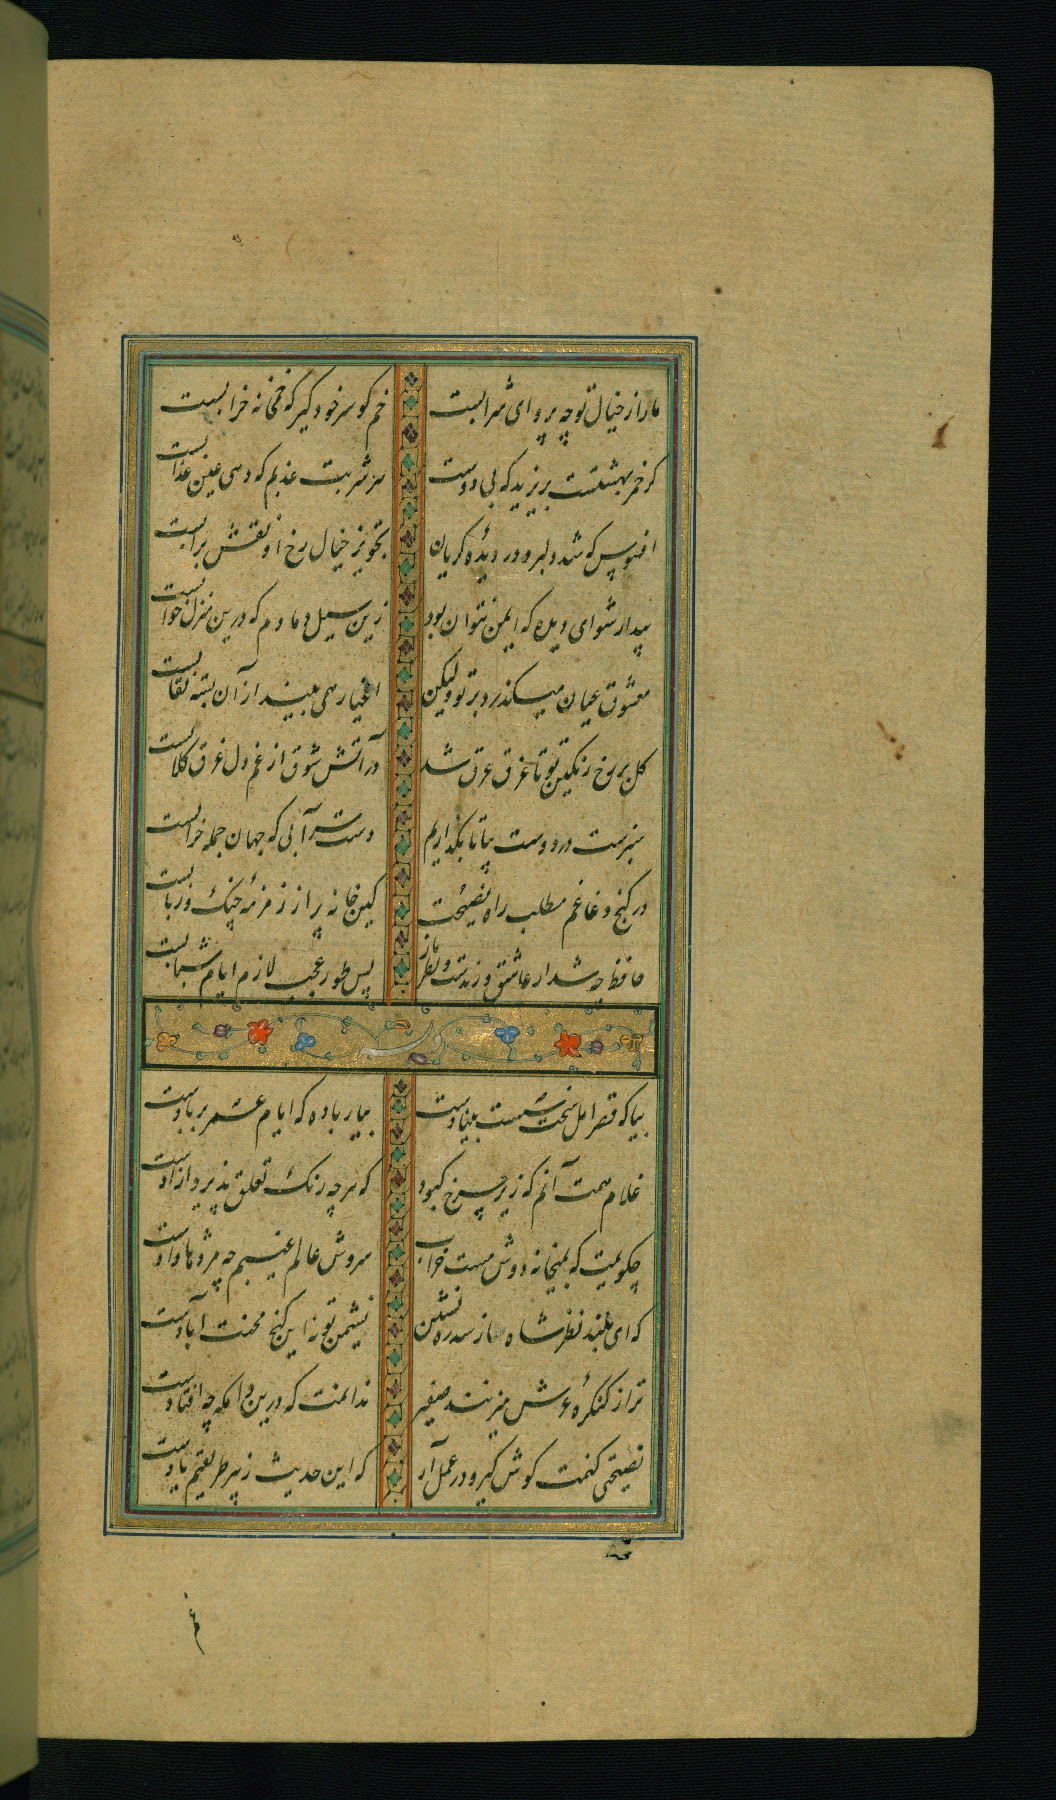 ما را ز خیال تو چه پروای شرابست خم کو سر خود گیر که خمخانه خرابست
گر خمر بهشتست بریزید که بی دوست هر شربت عذبم که دهی عین عذابست
افسوس که شد دلبر و در دیدهٔ گریان تحویز خیال رخ او نقش برابست
بیدار شو ای دیده که ایمن نتوان بود زین سیل دمادم که درین منزل خوابست
معشوق عیان میگذرد بر تو ولیکن اغیار همی بیند از آن بسته نقابست
گل بر رخ رنگین تو تا غرق عرق شد در آتش شوق از غم دل غرق گلابست
سبزست در و دشت بیا تا نگذاریم دست از سر آبی که جهان جمله سرابست
در کنج دماغم مطلب راه نصیحت کین خانه پر از زمزمهٔ چنگ و ربابست
حافظ چه شد ار عاشق و رندست و نظرباز بس طور عجب لازم ایام شبابست
وله
بیا که قصر امل سخت سست بنیادست بیار باده که ایام عمر بر بادست
غلام همت آنم که زیر چرخ کبود که هر چه رنگ تعلق پذیرد آزادست
چگویمت که بمیخانه دوش مست خراب سروش عالم غیبم چه مژدها دادست
که ای بلند نظر شاهباز سدره نشین نشیمن تو نه این کنج محنت آبادست
ترا ز کنگرهٔ عرش میزنند صفیر ندانمت که درین دامگه چه افتادست
نصیحتی کنمت گوش گیر و در عمل آر که این حدیث ز پیر طریقتم یادست